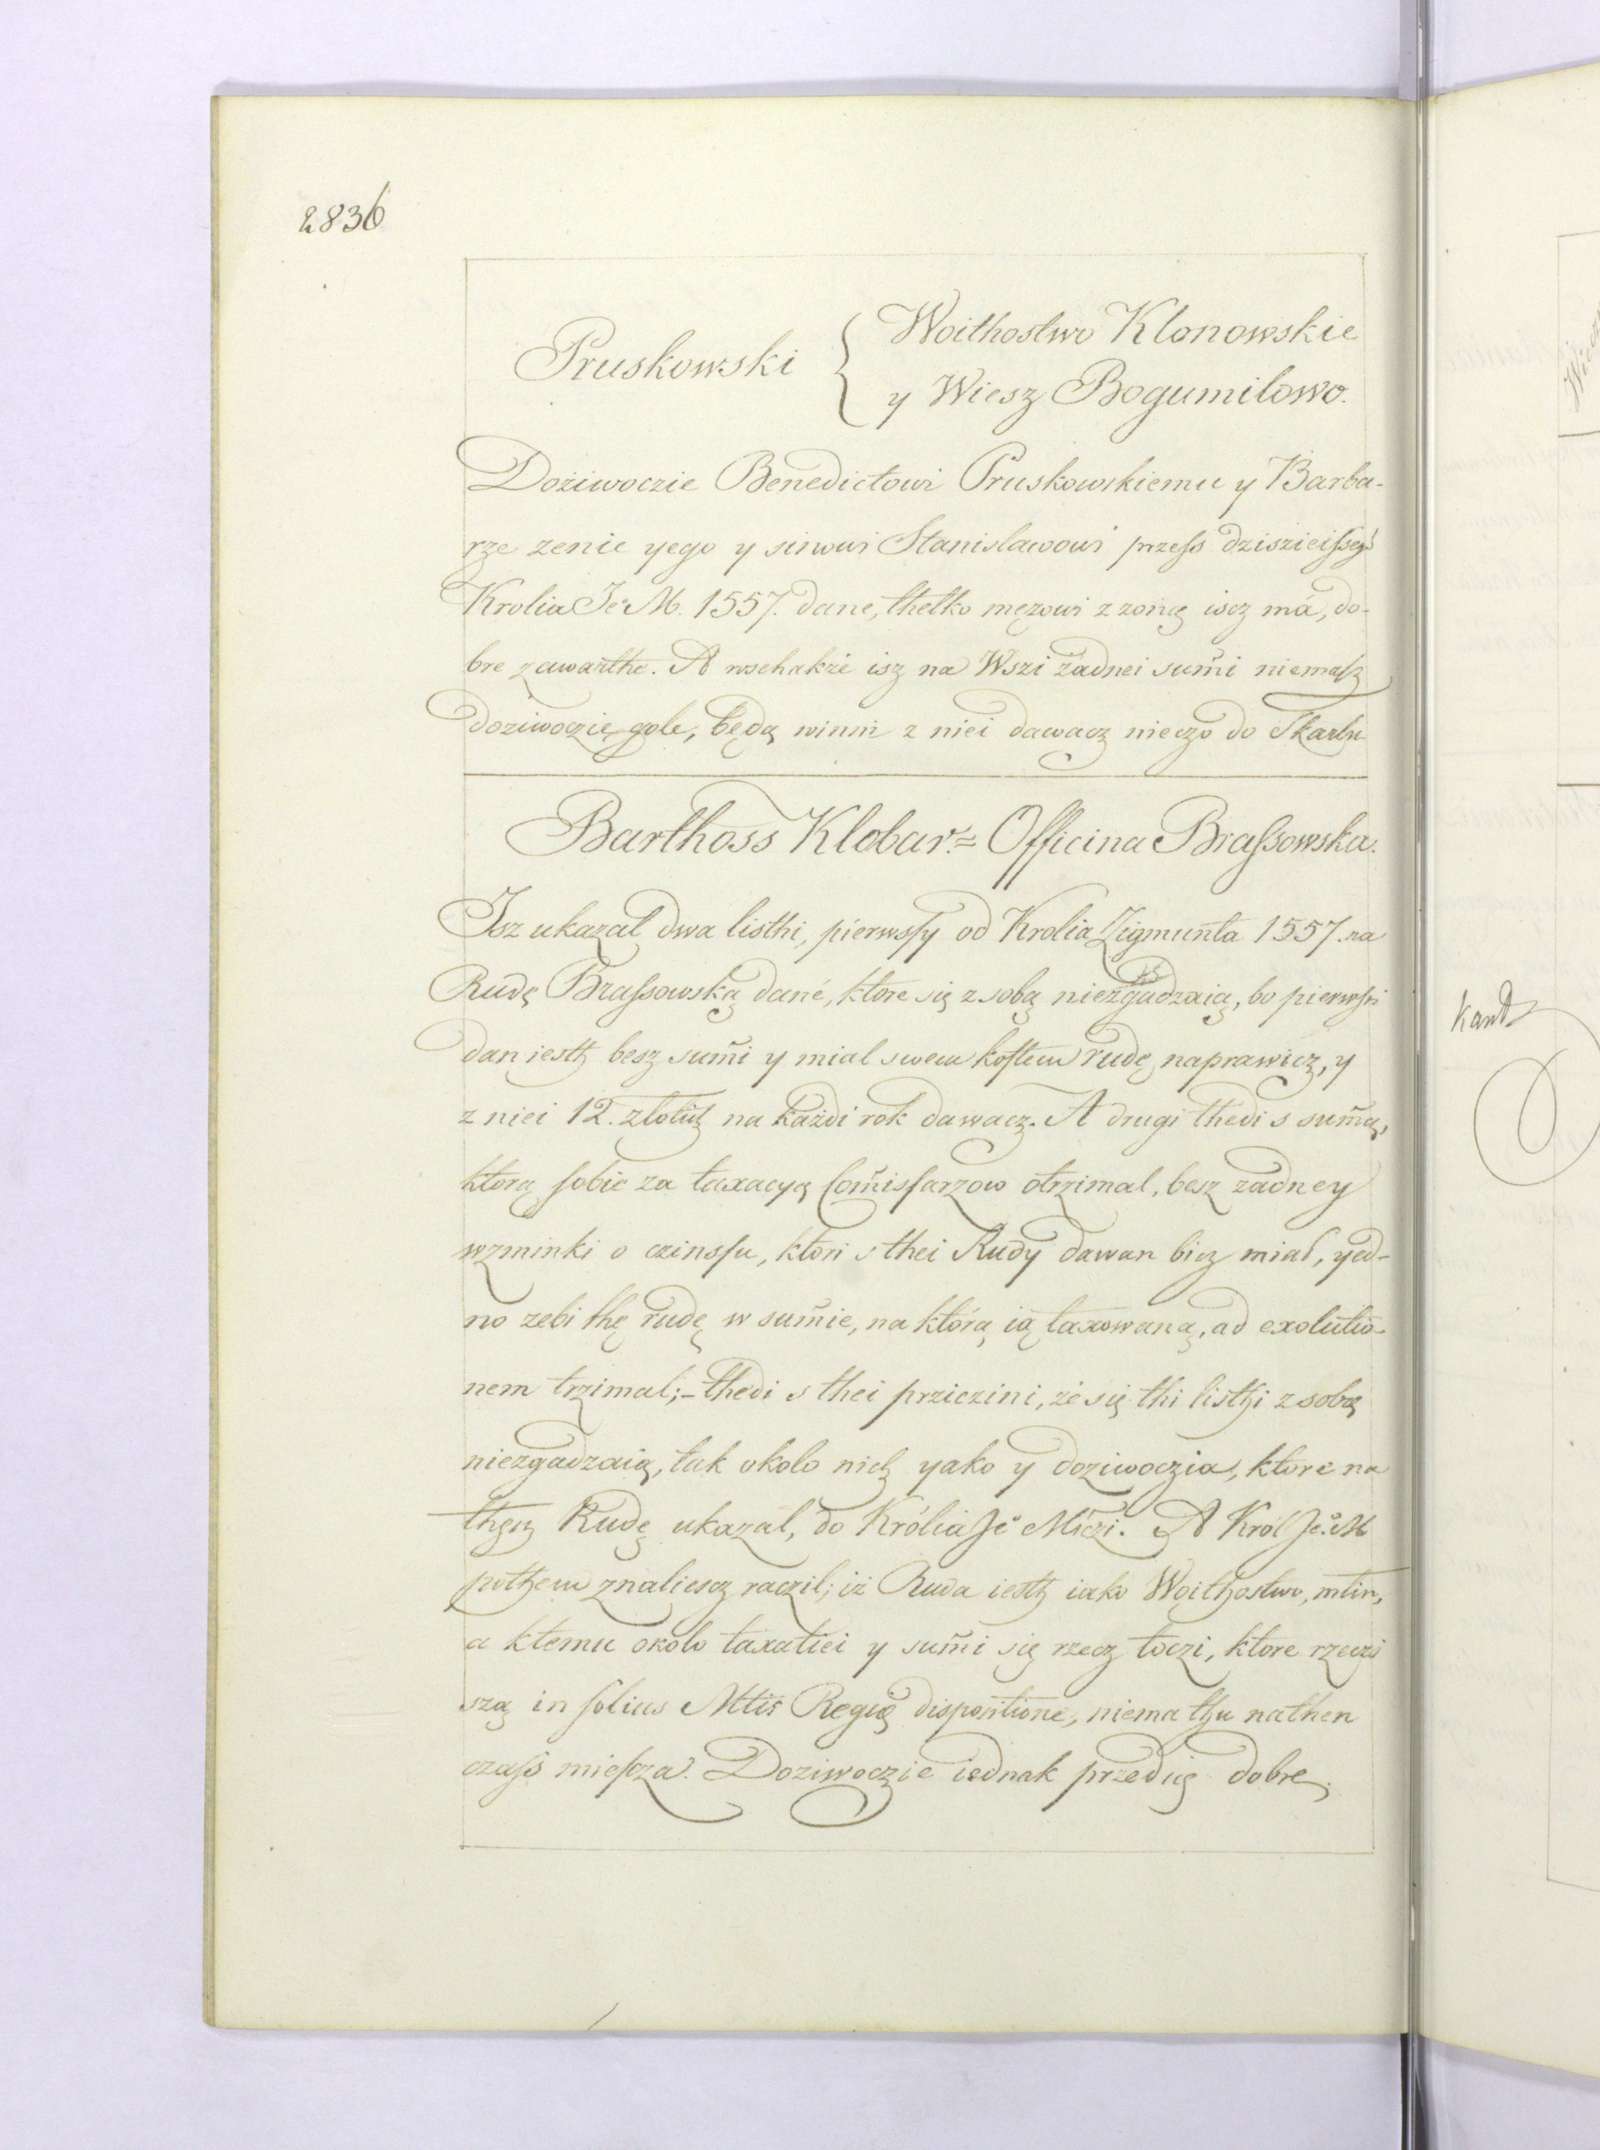 2836
Pruskowski { Woithostwo Klonowskie
y Wiesz Bogumilowo.
Doźiwoczie Benedictowi Pruskowskiemu y Barba-
rze zenie yego y sinowi Stanislawowi przess dzisieissego
Krolia Je M. 1557. dane, thelko mężowi z zoną iscz má, do-
bre zawarthe. A wschakże isz na Wszi żadnei sum̃i niemasz
doziwoczie gole, będą winni z niei dawacz nieczo do Skarbu
Barthoss Klobar. = Officina Brassowska.
Isz ukazal dwa listhi, pierwssy od Krolia Zigmunta 1557. na
Rudę Brassowską dané, ktore się z sobą niezgadzaią, bo pierwssi
dan iesth besz sum̃i y mial swem kosztem rudę naprawicz, y
z niei 12. zlotich na każdi rok dawacz. A drugi thedi s sum̃ą,
ktorą sobie za taxacyą Com̃issarzow otrzimal, besz zadney
wzminki o czinssu, ktori s thei Rudy dawan bicz miał, yed-
no zebi thę rudę w sum̃ie, na którą ią taxowaną, ad exolutio-
nem trzimal; – thedi s thei prziczini, że się thi listhi z sobą
niezgadzaią, tak okolo nich yako y doziwoczia, ktore na
thęsz Rudę ukazal, do Królia Je Miczi. A Król Je M
pothem znaliescz raczil; iż Ruda iesth iako Woithostwo, mlin,
a ktemu okolo taxatiei y sum̃i się rzecz toczi, ktore rzeczi
szą in solius Mtis Regię dispositione, niema thu na then
czass miescza. Doziwoczie iednak przedię dobre.
kart